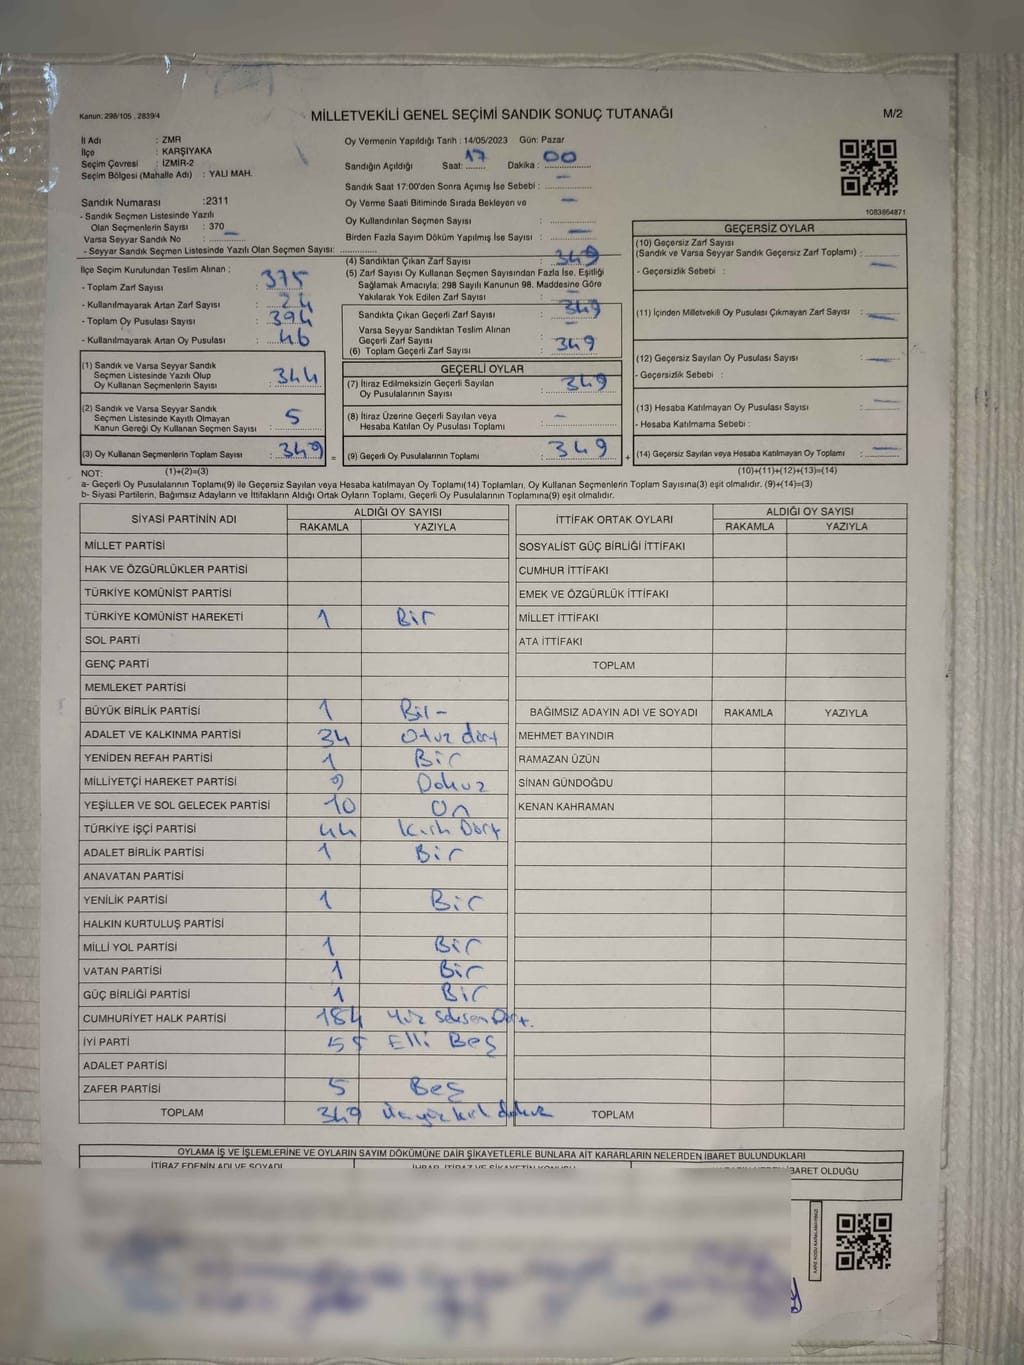 Kanun: 298/105 , 2839/4
MİLLETVEKİLİ GENEL SEÇİMİ SANDIK SONUÇ TUTANAĞI
M/2
İl Adı : ZMR
İlçe : KARŞIYAKA
Seçim Çevresi : İZMİR-2
Seçim Bölgesi (Mahalle Adı) : YALI MAH.
Sandık Numarası :2311
- Sandık Seçmen Listesinde Yazılı
Olan Seçmenlerin Sayısı : 370
Varsa Seyyar Sandık No : –
- Seyyar Sandık Seçmen Listesinde Yazılı Olan Seçmen Sayısı:
Oy Vermenin Yapıldığı Tarih : 14/05/2023 Gün: Pazar
Sandığın Açıldığı Saat: 17 Dakika : 00
Sandık Saat 17:00'den Sonra Açımış İse Sebebi : –
Oy Verme Saati Bitiminde Sırada Bekleyen ve –
Oy Kullandırılan Seçmen Sayısı :
Birden Fazla Sayım Döküm Yapılmış İse Sayısı : –
1083864871
İlçe Seçim Kurulundan Teslim Alınan ;
- Toplam Zarf Sayısı : 375
- Kullanılmayarak Artan Zarf Sayısı :
- Toplam Oy Pusulası Sayısı : 394
- Kullanılmayarak Artan Oy Pusulası : 46
(1) Sandık ve Varsa Seyyar Sandık
Seçmen Listesinde Yazılı Olup
Oy Kullanan Seçmenlerin Sayısı : 344
(2) Sandık ve Varsa Seyyar Sandık
Seçmen Listesinde Kayıtlı Olmayan
Kanun Gereği Oy Kullanan Seçmen Sayısı : 5
(3) Oy Kullanan Seçmenlerin Toplam Sayısı : 349 =
(4) Sandıktan Çıkan Zarf Sayısı : 349
(5) Zarf Sayısı Oy Kullanan Seçmen Sayısından Fazla İse, Eşitliği
Sağlamak Amacıyla; 298 Sayılı Kanunun 98. Maddesine Göre
Yakılarak Yok Edilen Zarf Sayısı : –
Sandıkta Çıkan Geçerli Zarf Sayısı : 349
Varsa Seyyar Sandıktan Teslim Alınan
Geçerli Zarf Sayısı : –
(6) Toplam Geçerli Zarf Sayısı : 349
GEÇERLİ OYLAR
(7) İtiraz Edilmeksizin Geçerli Sayılan
Oy Pusulalarının Sayısı : 349
(8) İtiraz Üzerine Geçerli Sayılan veya
Hesaba Katılan Oy Pusulası Toplamı : –
(9) Geçerli Oy Pusulalarının Toplamı : 349 +
GEÇERSİZ OYLAR
(10) Geçersiz Zarf Sayısı
(Sandık ve Varsa Seyyar Sandık Geçersiz Zarf Toplamı) :
- Geçersizlik Sebebi : –
(11) İçinden Milletvekili Oy Pusulası Çıkmayan Zarf Sayısı : –
(12) Geçersiz Sayılan Oy Pusulası Sayısı : –
- Geçersizlik Sebebi :
(13) Hesaba Katılmayan Oy Pusulası Sayısı : –
- Hesaba Katılmama Sebebi :
(14) Geçersiz Sayılan veya Hesaba Katılmayan Oy Toplamı : –
NOT: (1)+(2)=(3)
(10)+(11)+(12)+(13)=(14)
a- Geçerli Oy Pusulalarının Toplamı(9) ile Geçersiz Sayılan veya Hesaba katılmayan Oy Toplamı(14) Toplamları, Oy Kullanan Seçmenlerin Toplam Sayısına(3) eşit olmalıdır. (9)+(14)=(3)
b- Siyasi Partilerin, Bağımsız Adayların ve İttifakların Aldığı Ortak Oyların Toplamı, Geçerli Oy Pusulalarının Toplamına(9) eşit olmalıdır.
SİYASİ PARTİNİN ADI ALDIĞI OY SAYISI
RAKAMLA YAZIYLA
MİLLET PARTİSİ
HAK VE ÖZGÜRLÜKLER PARTİSİ
TÜRKİYE KOMÜNİST PARTİSİ
TÜRKİYE KOMÜNİST HAREKETİ 1 Bir
SOL PARTİ
GENÇ PARTİ
MEMLEKET PARTİSİ
BÜYÜK BİRLİK PARTİSİ 1 Bir-
ADALET VE KALKINMA PARTİSİ 34 Otuz dört
YENİDEN REFAH PARTİSİ 1 Bir
MİLLİYETÇİ HAREKET PARTİSİ 9 Dokuz
YEŞİLLER VE SOL GELECEK PARTİSİ 10 On
TÜRKİYE İŞÇİ PARTİSİ 44 Kırk Dört
ADALET BİRLİK PARTİSİ 1 Bir
ANAVATAN PARTİSİ
YENİLİK PARTİSİ 1 Bir
HALKIN KURTULUŞ PARTİSİ
MİLLİ YOL PARTİSİ 1 Bir
VATAN PARTİSİ 1 Bir
GÜÇ BİRLİĞİ PARTİSİ 1 Bir
CUMHURİYET HALK PARTİSİ 184 Yüz Seksen Dört.
İYİ PARTİ 55 Elli Beş
ADALET PARTİSİ
ZAFER PARTİSİ 5 Beş
TOPLAM 349 Üçyüz kırk dokuz
İTTİFAK ORTAK OYLARI ALDIĞI OY SAYISI
RAKAMLA YAZIYLA
SOSYALİST GÜÇ BİRLİĞİ İTTİFAKI
CUMHUR İTTİFAKI
EMEK VE ÖZGÜRLÜK İTTİFAKI
MİLLET İTTİFAKI
ATA İTTİFAKI
TOPLAM
BAĞIMSIZ ADAYIN ADI VE SOYADI RAKAMLA YAZIYLA
MEHMET BAYINDIR
RAMAZAN ÜZÜN
SİNAN GÜNDOĞDU
KENAN KAHRAMAN
TOPLAM
OYLAMA İŞ VE İŞLEMLERİNE VE OYLARIN SAYIM DÖKÜMÜNE DAİR ŞİKAYETLERLE BUNLARA AİT KARARLARIN NELERDEN İBARET BULUNDUKLARI
İTİRAZ EDENİN ADI VE SOYADI
İBARET OLDUĞU